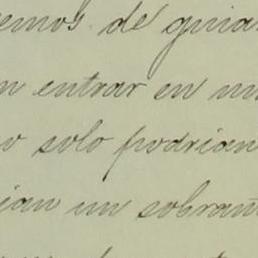 emos de guias
n entrar en un
o solo podrian
ian un sobran